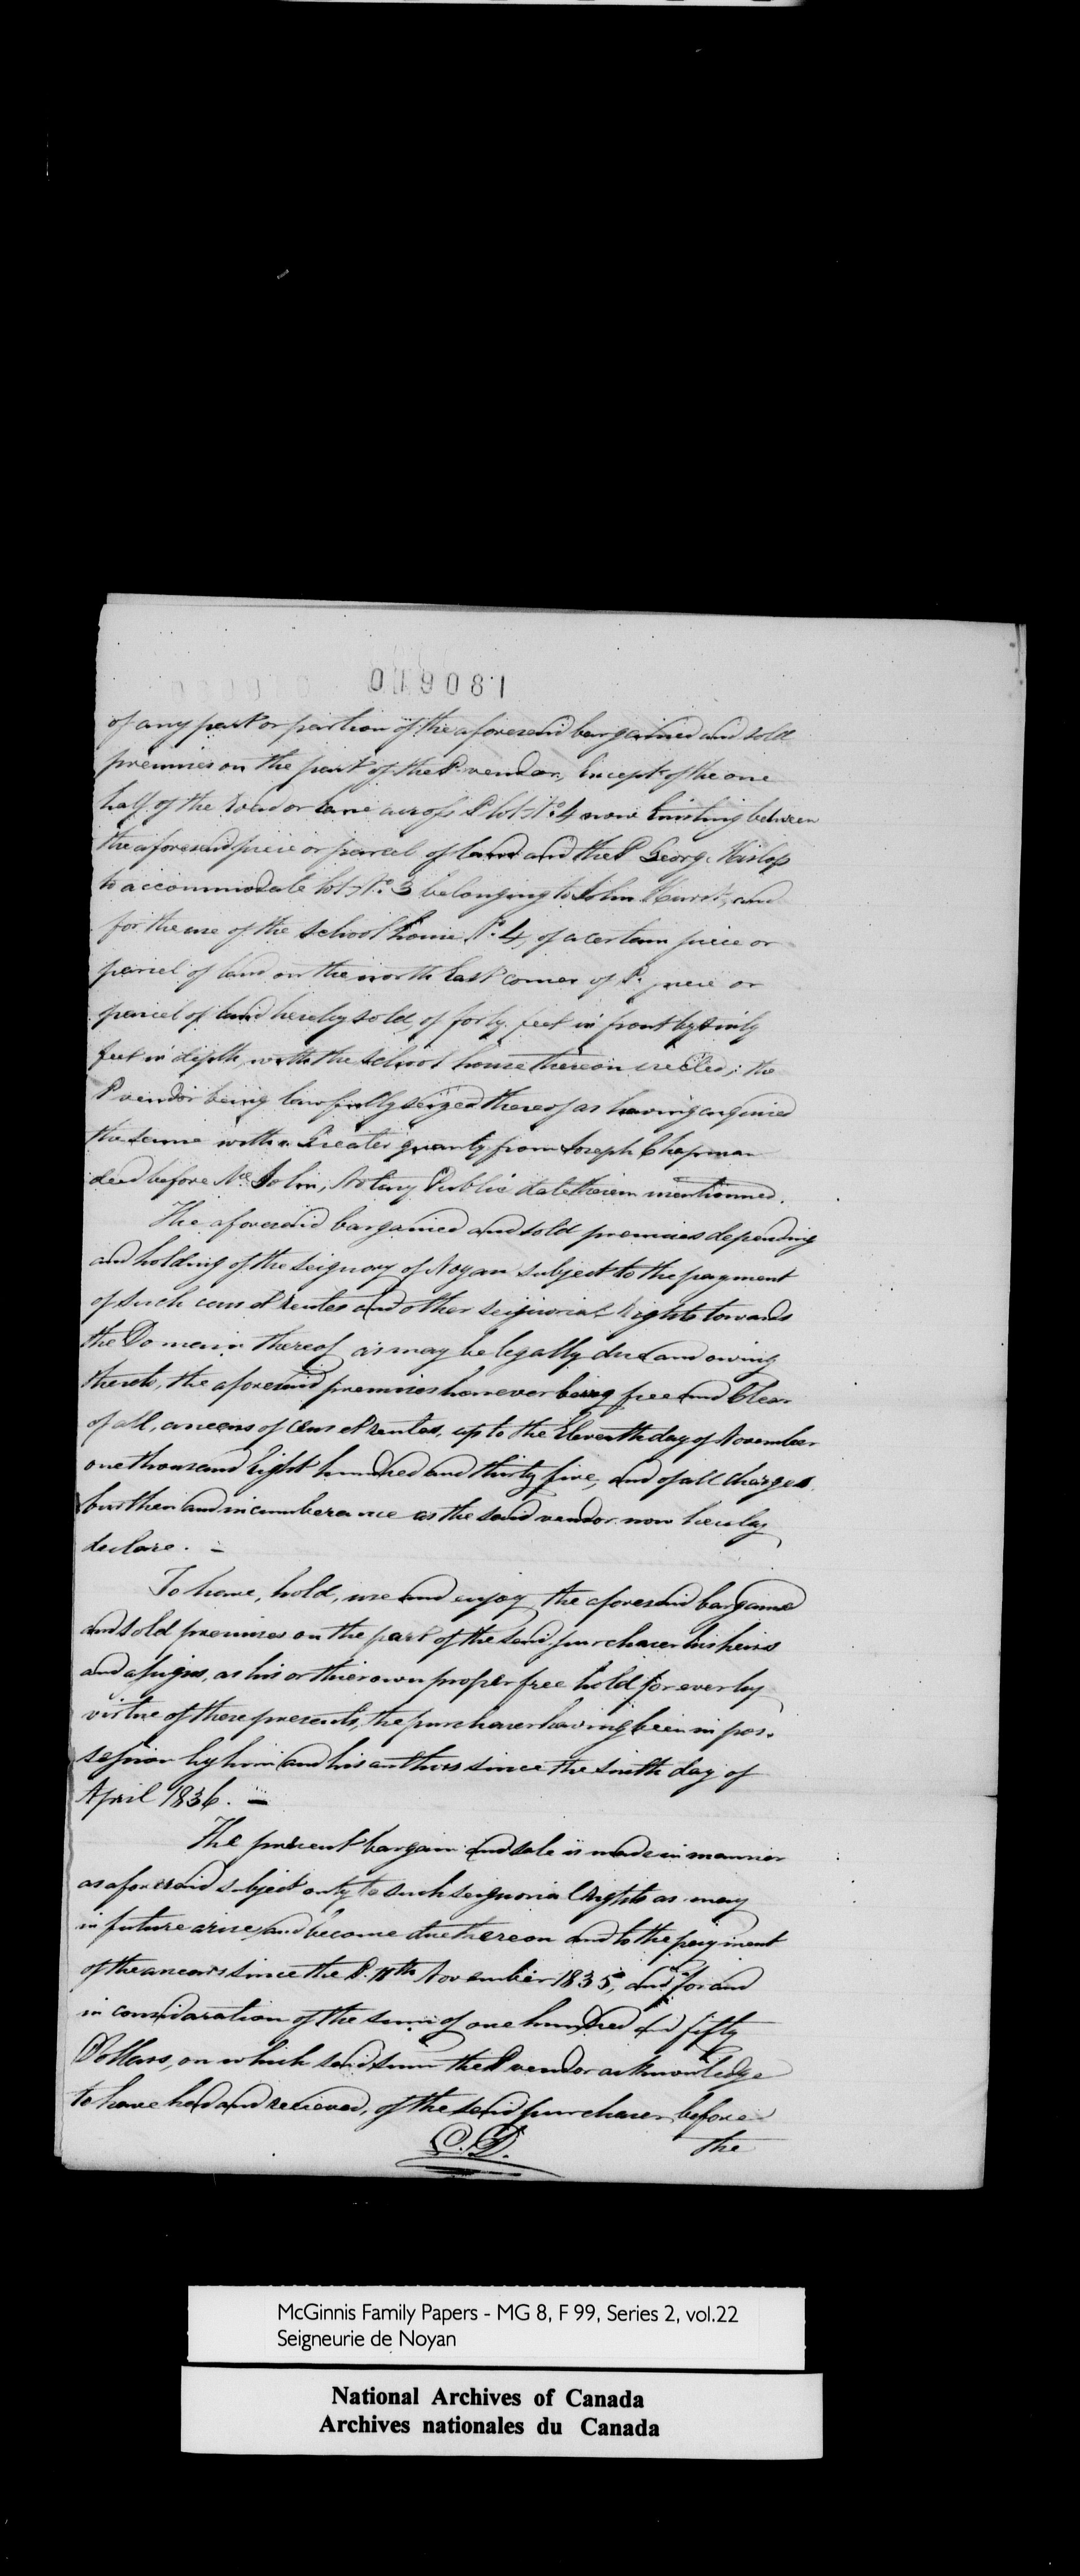 019081
of any part or portion of the aforesaid bargained and sold
premises on the part of the Sd vendor, Except of the one
half of the road or lane across Sd lot No. 4 now Existing between
the aforesaid piece or parcel of land and the Sd George
to accommodate lot No. 3 belonging to John and
for the use of the school house No. 4, of a certain piece or
parcel of land on the north East corner of Sd piece or
parcel of land hereby sold, of forty feet in front by
feet in depth, with the school house thereon erected; the
Sd vendor being lawfully seized thereof as having acquired
the same with a Greater quantity from Joseph Chapman
deed before Notary Public date therein mentionned.
The aforesaid bargained and sold premises depending
and holding of the seignory of Noyan subject to the payment
of such cens et rentes and other seigniorial rights towards
the Domain thereof as may be legally due and owing
thereto, the aforesaid premises however being free and Clear
of all, arrears of cens et rentes, up to the Eleventh day of November
one thousand Eight hundred and thirty five, and of all charges,
burthen and incumberance as the said vendor now hereby
declare. -
To have, hold, use and enjoy the aforesaid bargained
and sold premises on the part of the said purchaser his heirs
and assigns, as his or thier own proper free hold for ever by
virtue of these presents, the purchaser having been in pos-
session by him and his authors since the day of
April 1836. -
The present bargain and sale is made in manner
as aforesaid subject only to such seignorial rights as may
in future arise, and become due thereon and to the payment
of the arrears since the Sd. 11th November 1835, and for and
in consideration of the sum of one hundred and fifty
Dollars, on which said sum the Sd vendor acknowledge
to have had and recieved, of the said purchaser before
C. D.
the
McGinnis Family Papers - MG 8, F 99, Series 2, vol.22
Seigneurie de Noyan
National Archives of Canada
Archives nationales du Canada